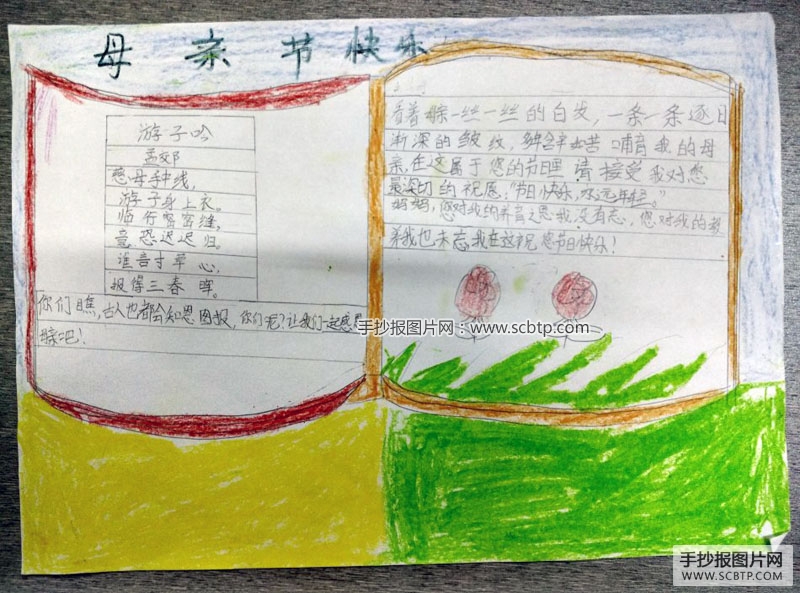 母亲节快乐
游子吟
孟郊
慈母手中线,
游子身上衣。
临行密密缝,
意恐迟迟归。
谁言寸草心,
报得三春晖。
你们瞧,古人也都会知恩图报,你们呢?让我们一起感恩
母亲吧!
看着母亲一丝一丝的白发,一条一条逐日
渐深的皱纹,含辛如苦哺育我的母
亲,在这属于您的节日里请接受我对您
最深切的祝愿:"节日快乐,永远年轻。"
妈妈,您对我的养育之恩我没有忘,您对我的教
我也未忘,我在这祝您节日快乐!
手抄报图片网:www.scbtp.com
手抄报图片网
WWW.SCBTP.COM